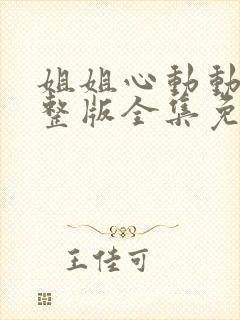 姐姐心動動
整版全集免
王佳可